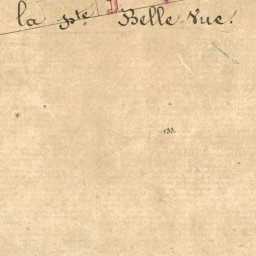 la pte Belle Vue.
133